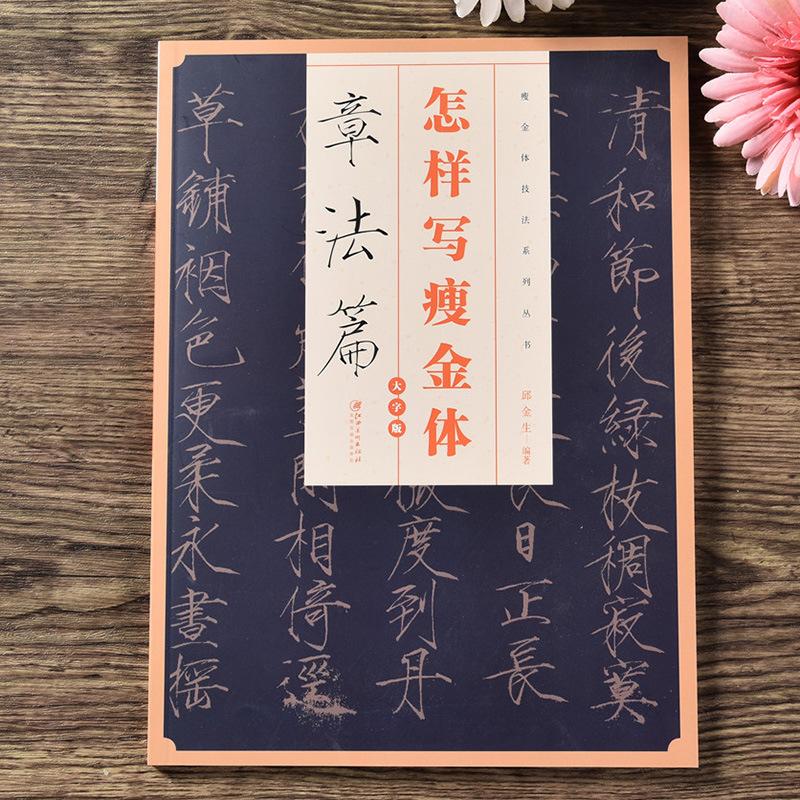 瘦金体技法系列丛书
邱金生 编著
怎样写瘦金体
大字版
章法篇
江西美术出版社
清和節後綠枝稠寂寞
長日正長
度到丹
相倚遥
草鋪裀色更柔永晝搖